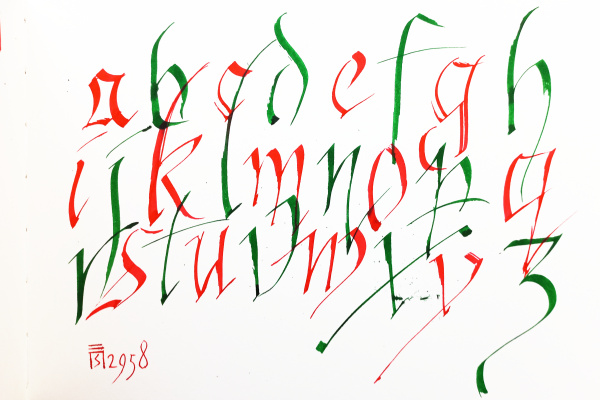 a b c d e f g h
i j k l m n o p q
r s t u v w x y z
2958